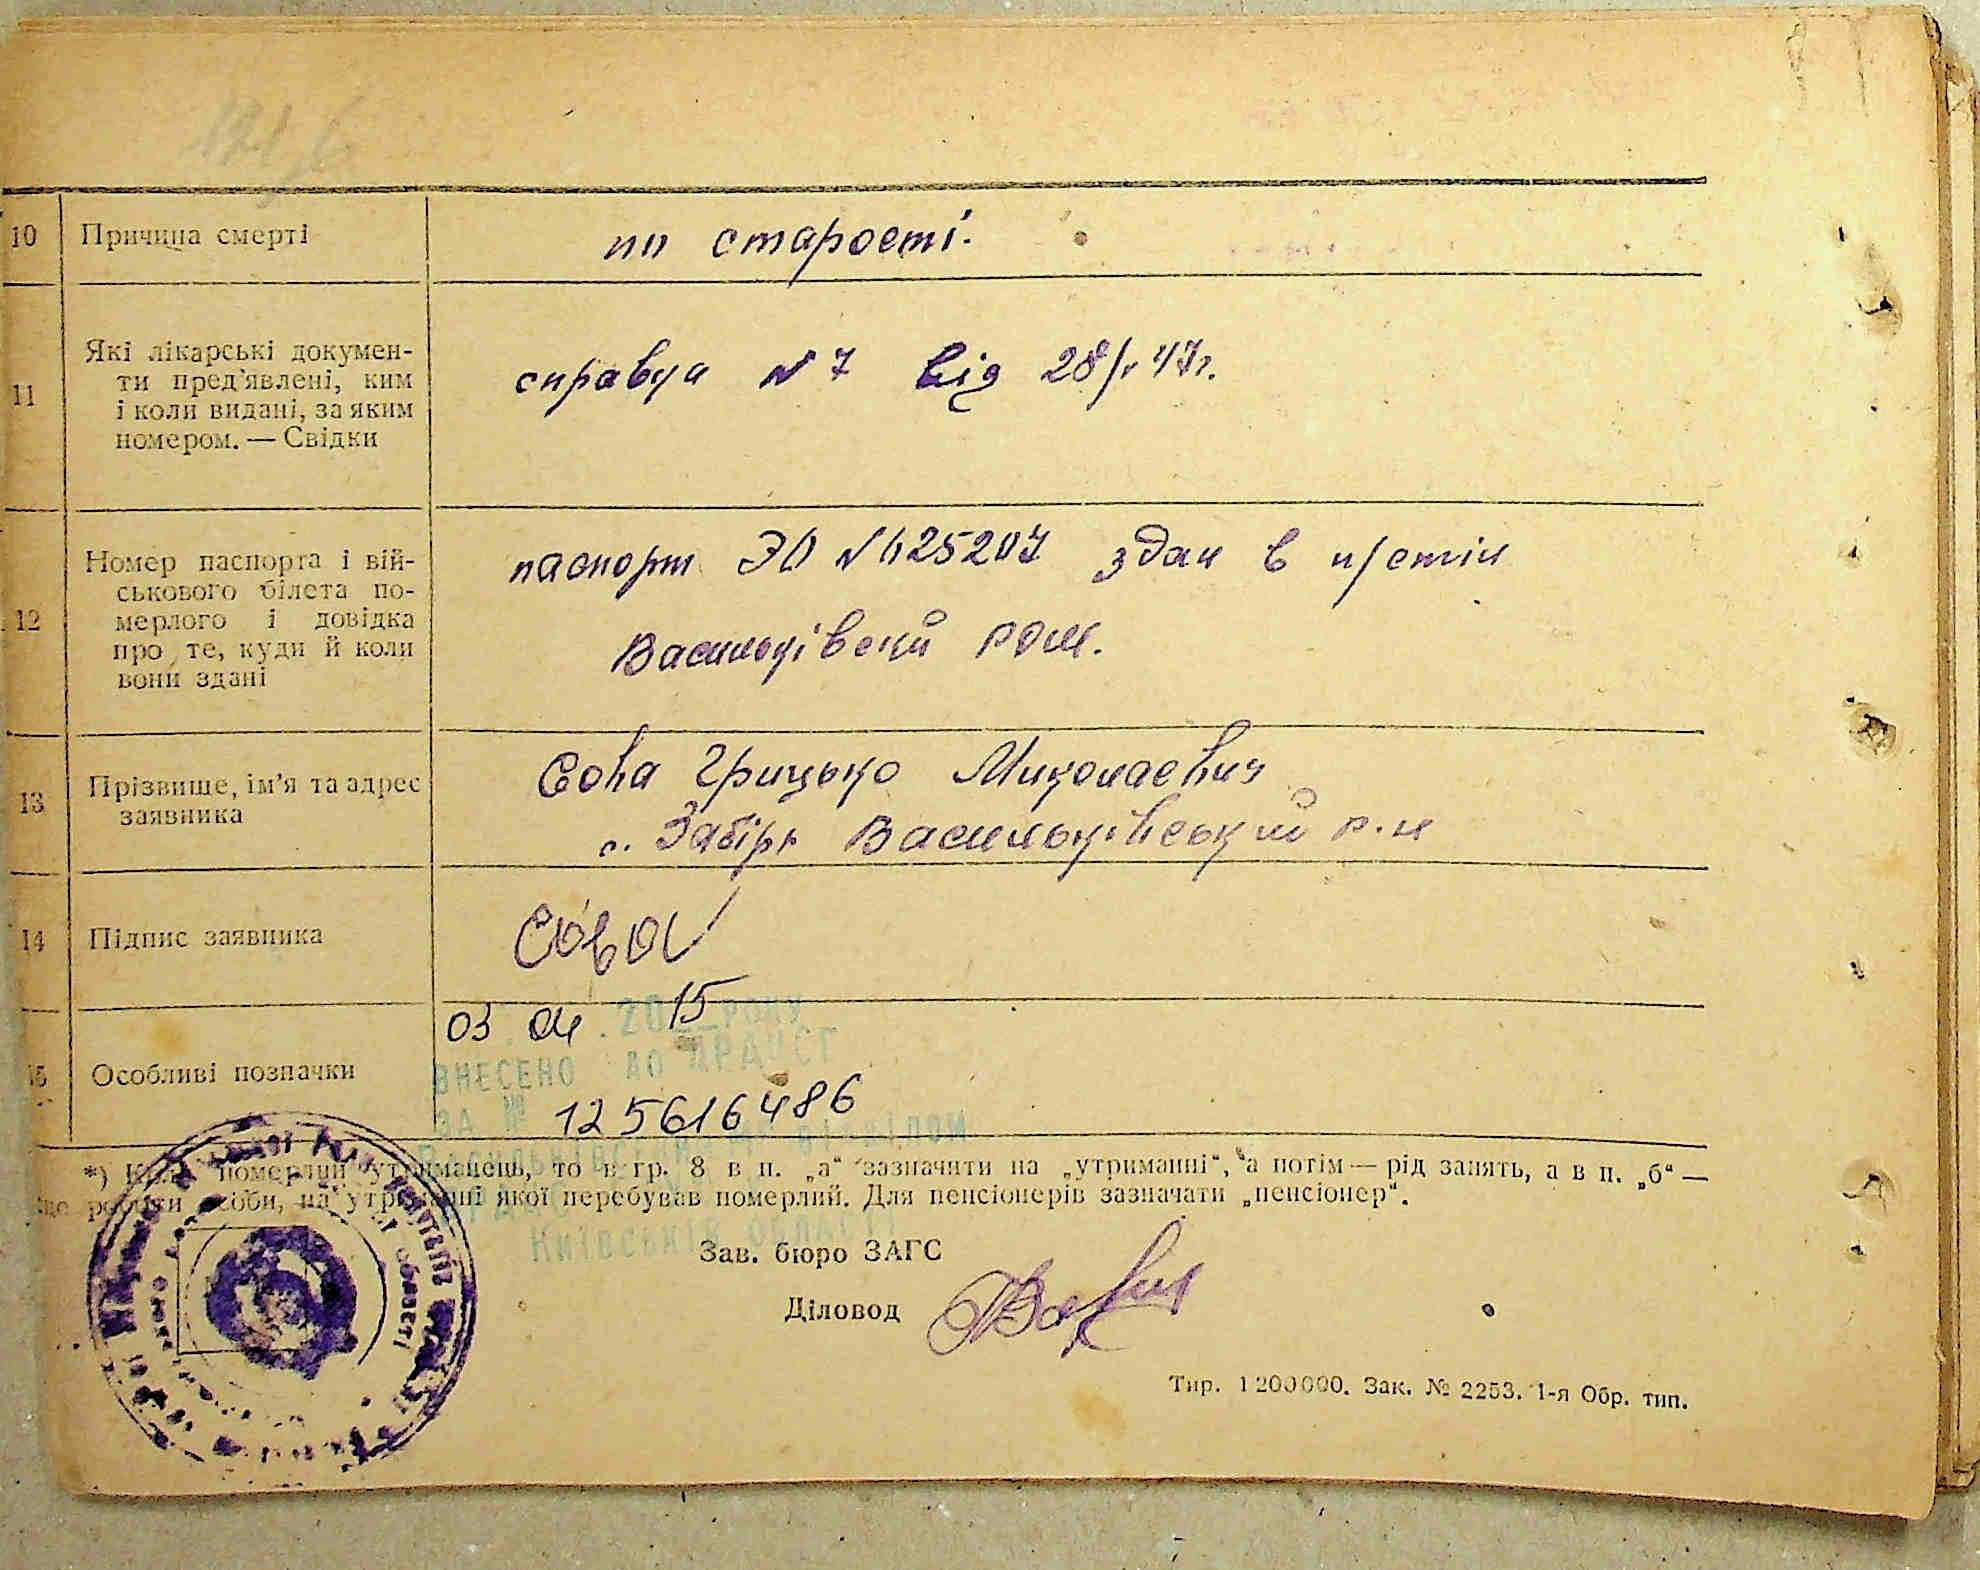 10 Причина смерті по старості.
11 Які лікарські докумен-
ти пред'явлені, ким
і коли видані, за яким
номером. — Свідки
справка №7 від 28/V 47г.
12 Номер паспорта і вій-
ськового білета по-
мерлого і довідка
про те, куди й коли
вони здані
паспорт ЭО № 625207 здан в п/стіл
Васильківский РОМ.
13 Прізвище, ім'я та адрес
заявника
Сова Грицько Миколаевич
с. Забірр Васильківський р-н
14 Підпис заявника Сова
15 Особливі позначки
03 04 . 2015 РОКУ
ВНЕСЕНО ДО ДРАЦСГ
ЗА № 125616486
*) померлий утриманець, то в гр. 8 в п. „а“ зазначити на „утриманні“, а потім — рід занять, а в п. „б“ —
роботи особи, на утриманні якої перебував померлий. Для пенсіонерів зазначати „пенсіонер“.
КИЇВСЬКІЙ ОБЛАСТІ
Зав. бюро ЗАГС
Діловод
Тир. 1200000. Зак. № 2253. 1-я Обр. тип.